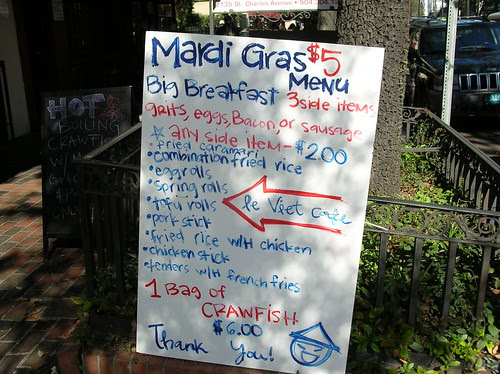 2135 St. Charles Avenue • 504
Mardi Gras $5
Menu
Big Breakfast 3 side items
grits, eggs, Bacon, or sausage
* any side item - $2.00
• fried caramari
• combination fried rice
• eggrolls
• spring rolls
• tofu rolls
le Viet Cafe
• pork stick
• fried rice with chicken
• chicken stick
• tenders with french fries
1 Bag of
CRAWFISH
$6.00
Thank You!
HOT
BOILING
CRAWFI